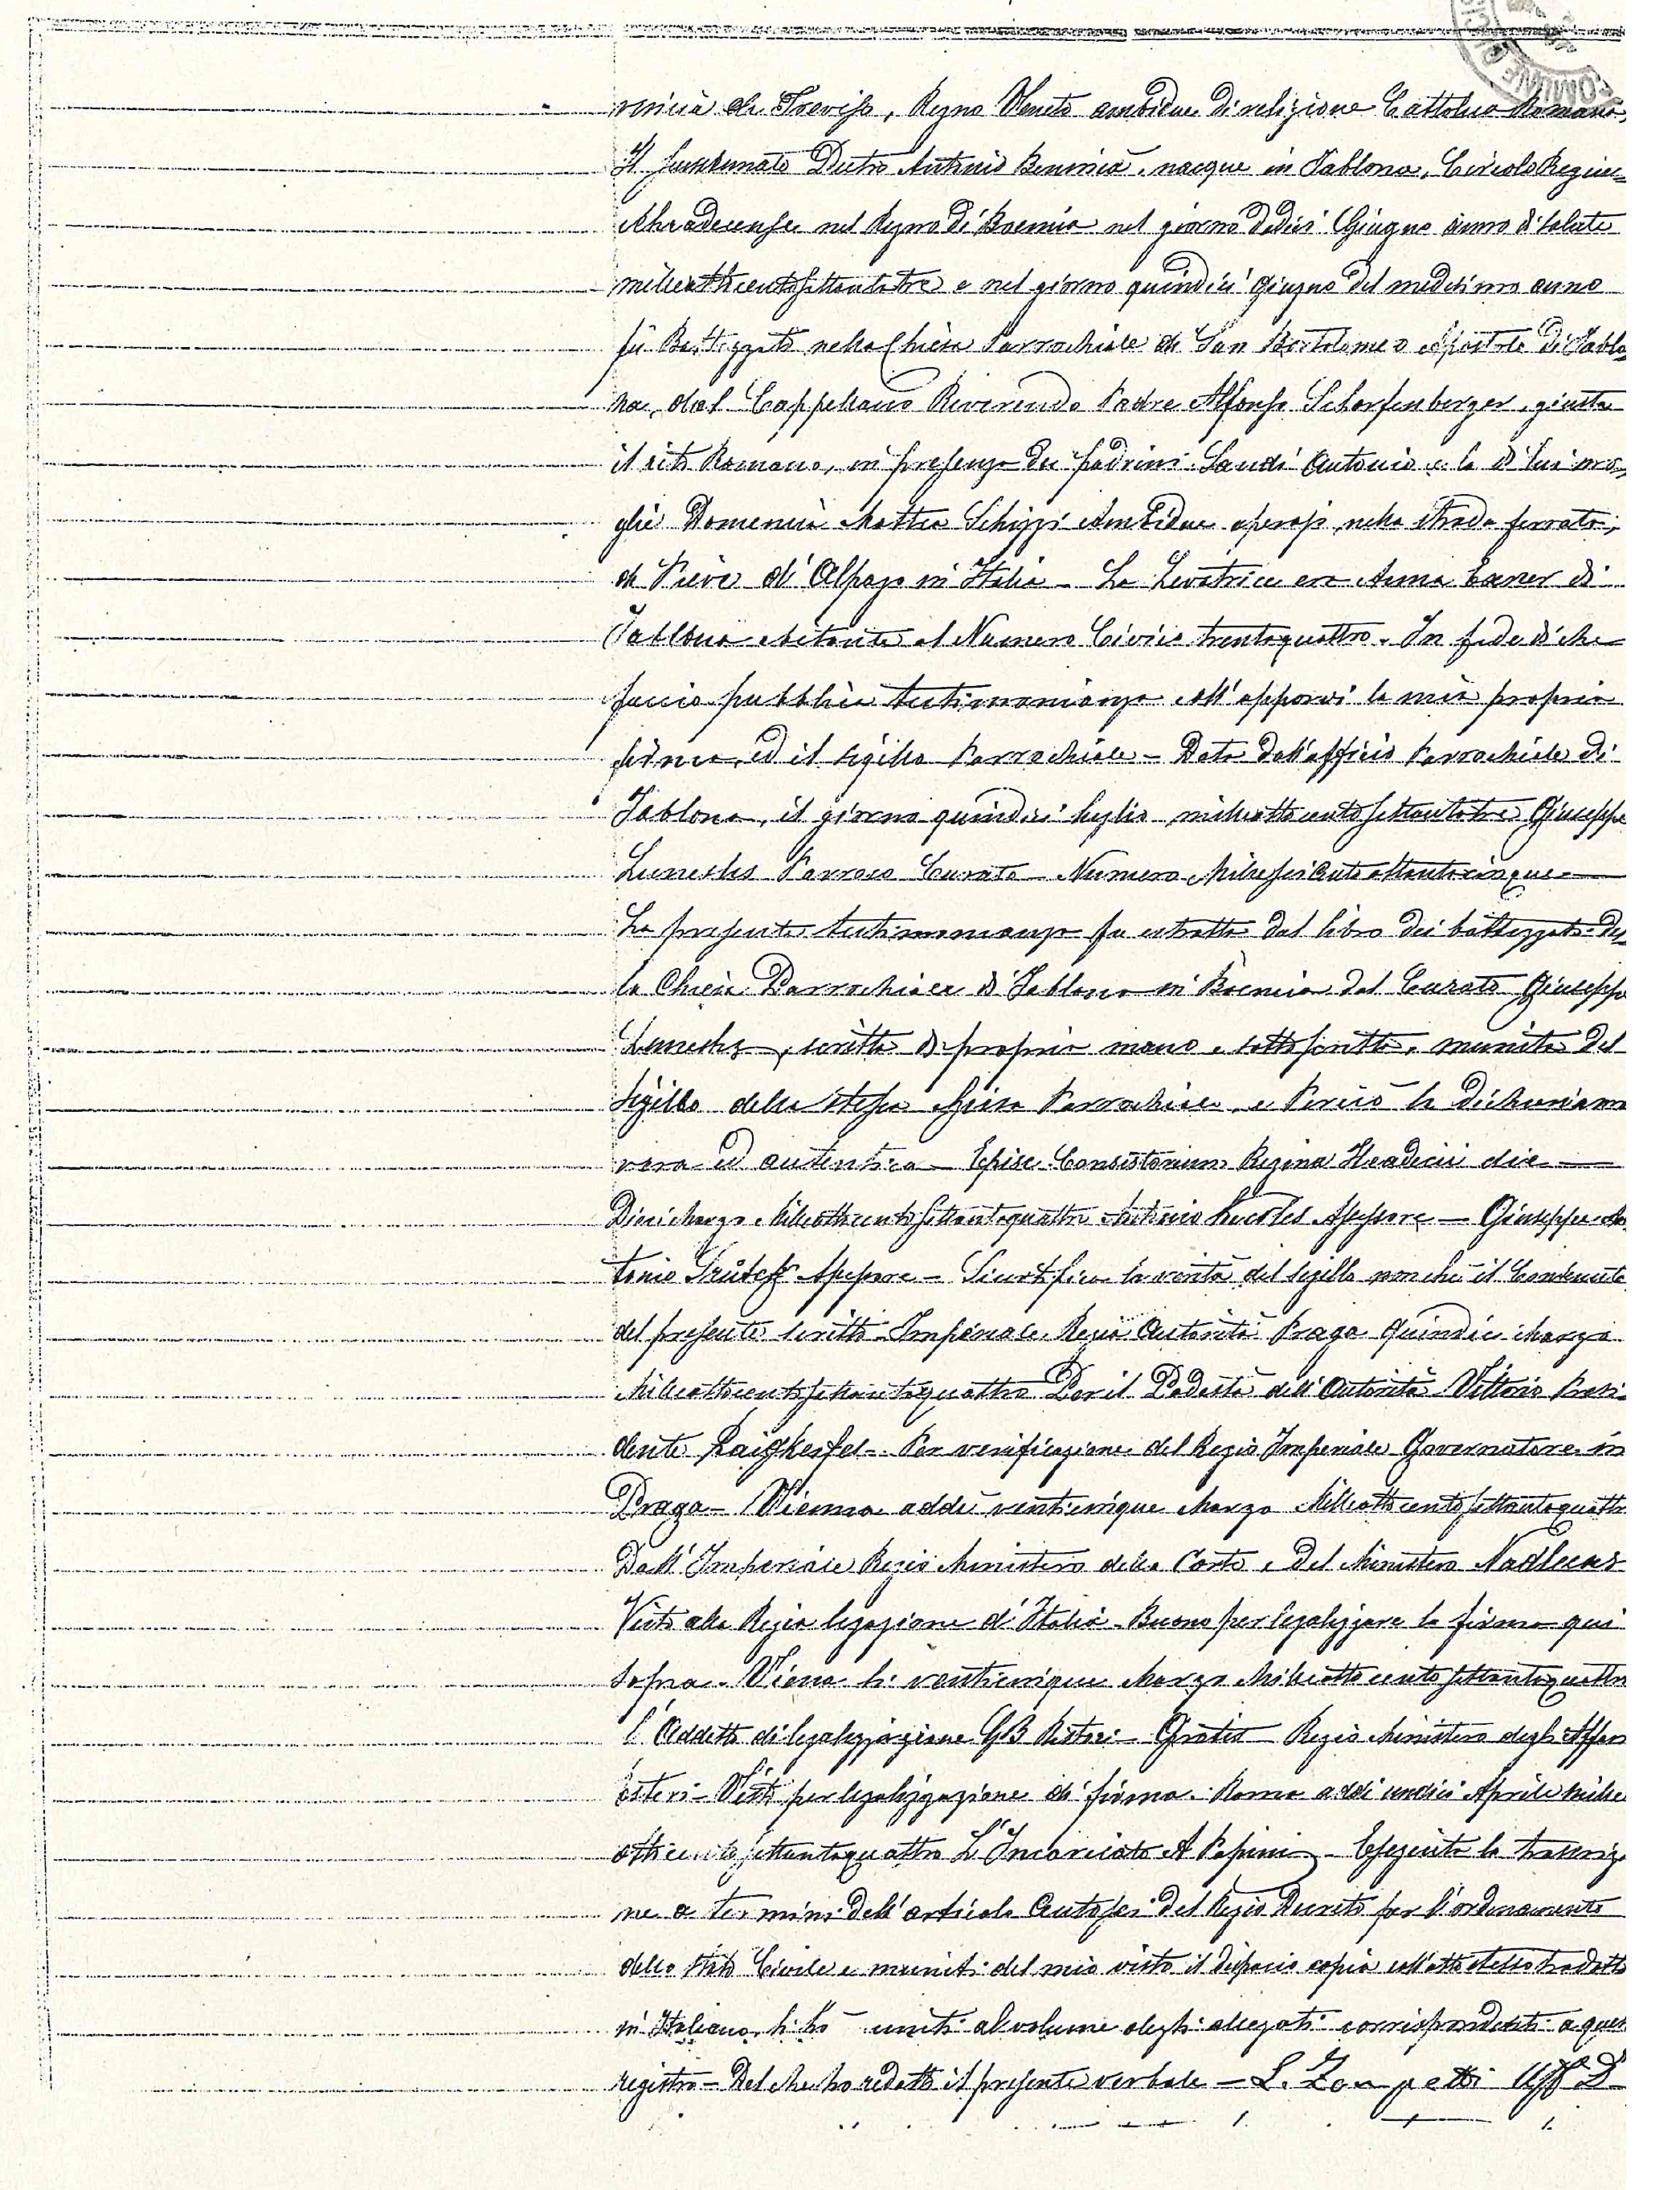 vincia di Treviso, Regno Veneto ambidue di religione Cattolica Romana.
Il sunnominato Pietro Antonio nacque in Jablona, Circolo Regine
Ahradecense nel Regno di Boemia nel giorno dodici Giugno anno di salute
milleottocentosettantatre e nel giorno quindici giugno del medesimo anno
fu Battezzato nella Chiesa Parrochiale di San Bortolomeo Apostolo di Jablo
na, dal Cappellano Reverendo Padre Alfonso Scharfenberger, giusta
il rito Romano, in presenza dei padrini Antonio e la di lui mo
glie Domenica Mattea Schizzi Ambidue operaj nella strada ferrata,
di Pieve d'Alpago in Italia – La Levatrice era Anna Exner di
Jablona abitante al Numero Civico trentaquattro. In fede di che
faccio pubblica testimonianza coll'apporvi la mia propria
firma, ed il sigillo Parrochiale – Data dall'officio Parrochiale di
Jablona, il giorno quindici luglio milleottocentosettantatre Giuseppe
Parroco Curato – Numero Milleseicentottantacinque –
La presente testimonianza fu estratta dal libro dei battezzati del
la Chiesa Parrochiale di Jablona in Boemia dal Curato Giuseppe
scritta di propria mano e sottoscritta, munita del
Sigillo della stessa Chiesa Parrochiale e Perciò la dichiariamo
vera ed autentica – Episc. Consistorium Regina Hradecii die –
Dieci Marzo Milleottocentosettantaquattro Antonio Assessore – Giuseppe An
tonio Assessore – Si certifica la verità del sigillo nonchè il Contenuto
del presente scritto – Imperiale Regia Autorità Praga quindici Marzo
Milleottocentosettantaquattro Per il Podestà dell'Autorità Vittorio Presi
dente – Per verificazione del Regio Imperiale Governatore in
Praga – Vienna addì venticinque Marzo Milleottocentosettantaquattro
Dall'Imperiale Regio Ministero della Corte e Del Ministero
Visto alla Regia legazione d'Italia – Buono per legalizzare la firma qui
sopra – Viena li venticinque Marzo Milleottocentosettantaquattro
l'Addetto di legalizzazione GB – Gratis – Regio Ministero degli Affari
esteri – Visto per legalizzazione di firma. Roma addi undici Aprile mille
ottocentosettantaquattro L'Incaricato A Papini – Eseguita la trascrizio
ne a termini dell'articolo centosei del Regio Decreto per l'ordinamento
dello Stato Civile e muniti del mio visto il dispacio copia coll'atto stesso tradotto
in Italiano, li ho uniti al volume degli allegati corrispondenti a questo
registro – Del che ho redatto il presente verbale – L. Zampetti Uff D